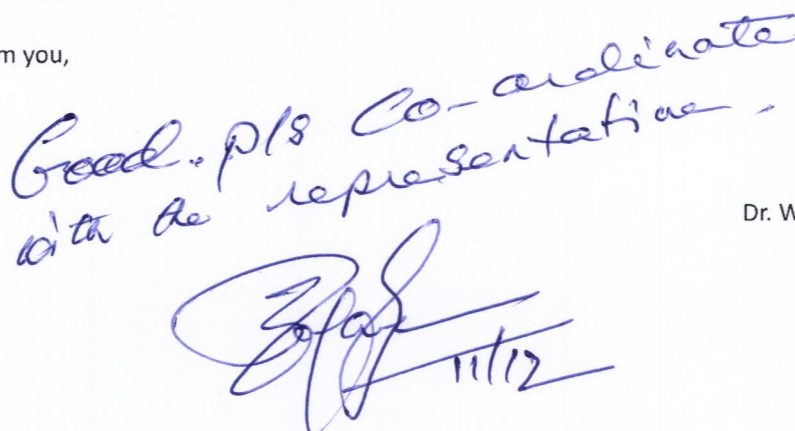 m you,
Good. pls Co-ordinate
with the representative.
Dr. W
11/12